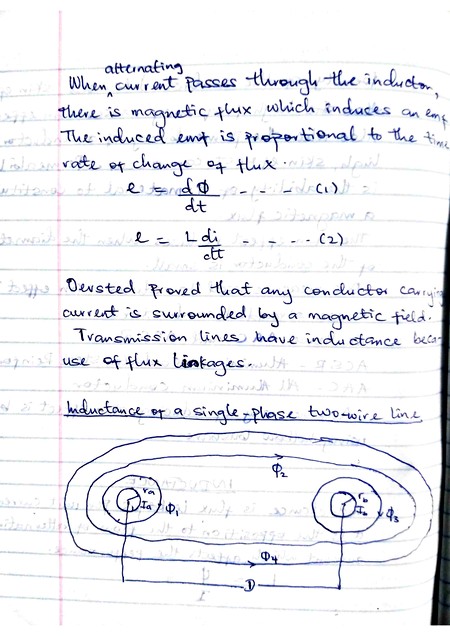 alternating
When ^ current passes through the inductor,
there is magnetic flux which induces an emf
The induced emf is proportional to the time
rate of change of flux.
e = dΦ/dt - - - (1)
e = L di/dt - - - - (2)
Oersted proved that any conductor carrying
current is surrounded by a magnetic field.
Transmission lines have inductance beca-
use of flux linkages.
Inductance of a single-phase two-wire line
Φ2
ra
Ia Φ1
rb
Ib Φ3
Φ4
D